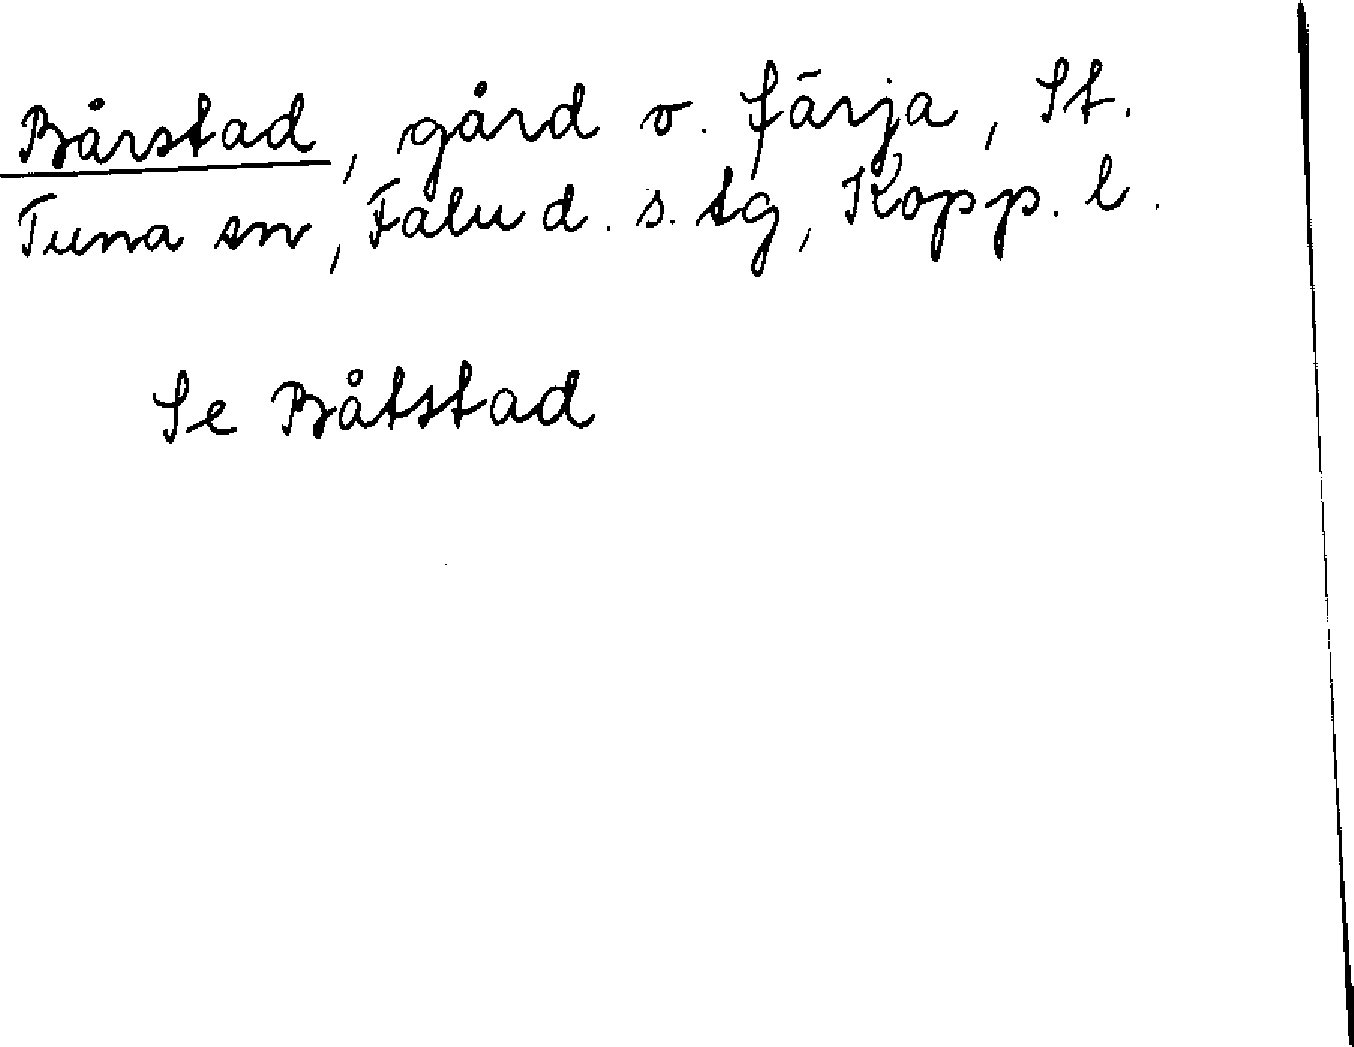 Bårstad, gård o. färja, St.
Tuna sn, Falu d. s. tg, Kopp. l.
Se Båtstad